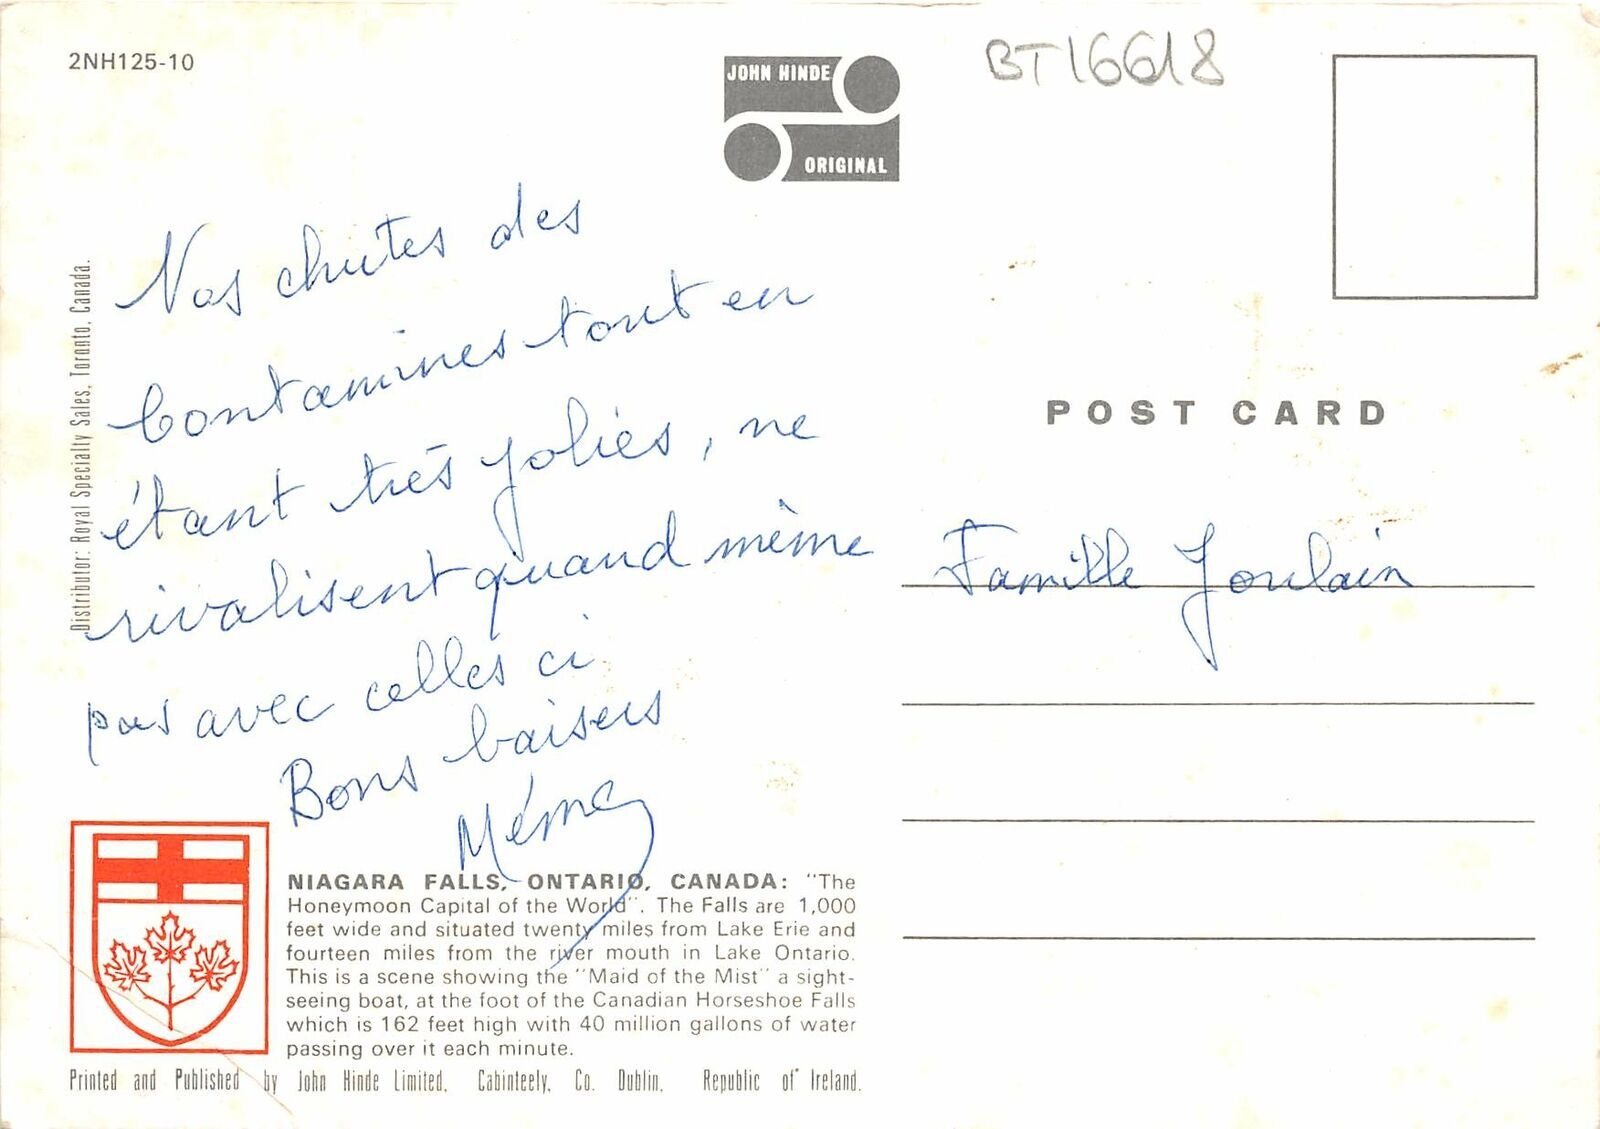 2NH125-10
JOHN HINDE
ORIGINAL
BT16618
Nos chutes des
Contamines tout en
étant très jolies, ne
rivalisent quand même
pas avec celles ci
Bons baisers
Mémé
Distributor: Royal Specialty Sales, Toronto, Canada.
POST CARD
Famille Joulain
NIAGARA FALLS, ONTARIO, CANADA: "The
Honeymoon Capital of the World". The Falls are 1,000
feet wide and situated twenty miles from Lake Erie and
fourteen miles from the river mouth in Lake Ontario.
This is a scene showing the "Maid of the Mist" a sight-
seeing boat, at the foot of the Canadian Horseshoe Falls
which is 162 feet high with 40 million gallons of water
passing over it each minute.
Printed and Published by John Hinde Limited, Cabinteely, Co. Dublin, Republic of Ireland.